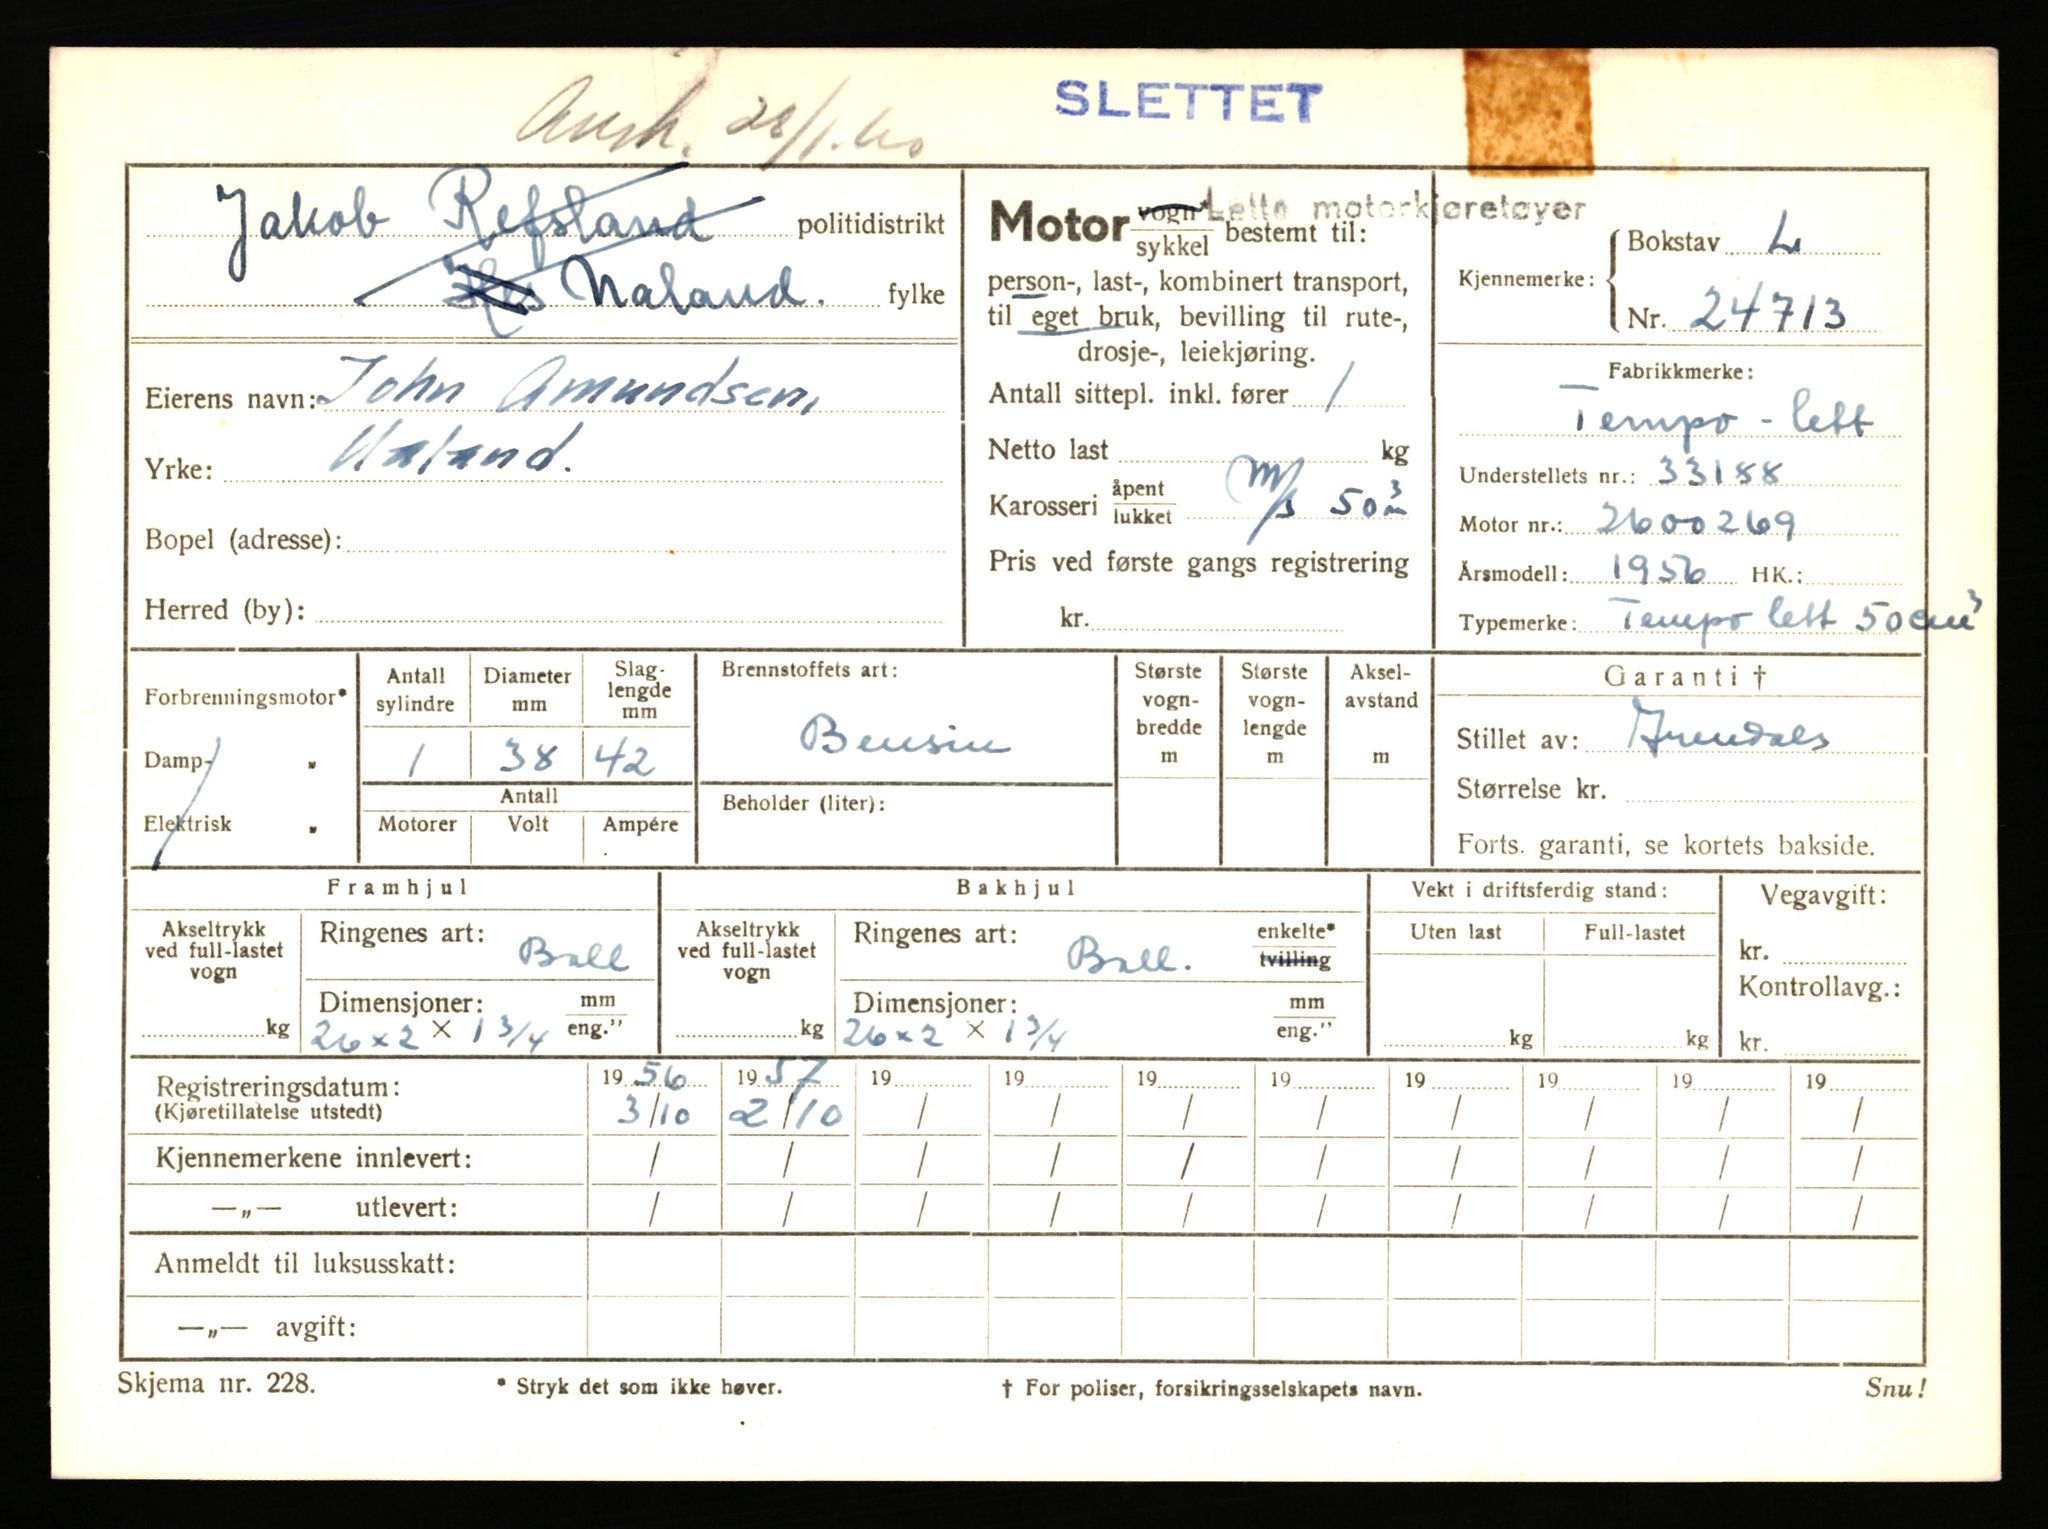 Avsk. 28/1.60
SLETTET
Jakob Refsland politidistrikt
Naland. fylke
Eierens navn: John Amundsen,
Yrke: Naland.
Bopel (adresse):
Herred (by):
Motor vogn* Lette motorkjøretøyer
sykkel bestemt til:
person-, last-, kombinert transport,
til eget bruk, bevilling til rute-,
drosje-, leiekjøring.
Antall sittepl. inkl. fører 1
Netto last kg
Karosseri åpent lukket m/s 50 m3
Pris ved første gangs registrering
kr.
Kjennemerke: Bokstav L
Nr. 24713
Fabrikkmerke:
Tempo - lett
Understellets nr.: 33188
Motor nr.: 2600269
Årsmodell: 1956 HK.:
Typemerke: Tempo lett 50 cm3
Forbrenningsmotor*
Damp- "
Elektrisk "
Antall sylindre
Diameter mm
Slag-lengde mm
1 38 42
Antall
Motorer Volt Ampére
Brennstoffets art:
Bensin
Beholder (liter):
Største vogn-bredde m
Største vogn-lengde m
Aksel-avstand m
Garanti †
Stillet av:
Størrelse kr.
Forts. garanti, se kortets bakside.
Framhjul
Akseltrykk ved full-lastet vogn
kg
Ringenes art: Ball
Dimensjoner: mm eng."
26 x 2 x 1 3/4
Bakhjul
Akseltrykk ved full-lastet vogn
kg
Ringenes art: Ball. enkelte* tvilling
Dimensjoner: mm eng."
26 x 2 x 1 3/4
Vekt i driftsferdig stand:
Uten last Full-lastet
kg kg
Vegavgift:
kr.
Kontrollavg.:
kr.
Registreringsdatum: 19 56 19 57 19 19 19 19 19 19 19 19
(Kjøretillatelse utstedt) 3/10 2/10 / / / / / / / /
Kjennemerkene innlevert: / / / / / / / / / /
—„— utlevert: / / / / / / / / / /
Anmeldt til luksusskatt:
—„— avgift:
Skjema nr. 228.
* Stryk det som ikke høver.
† For poliser, forsikringsselskapets navn.
Snu!